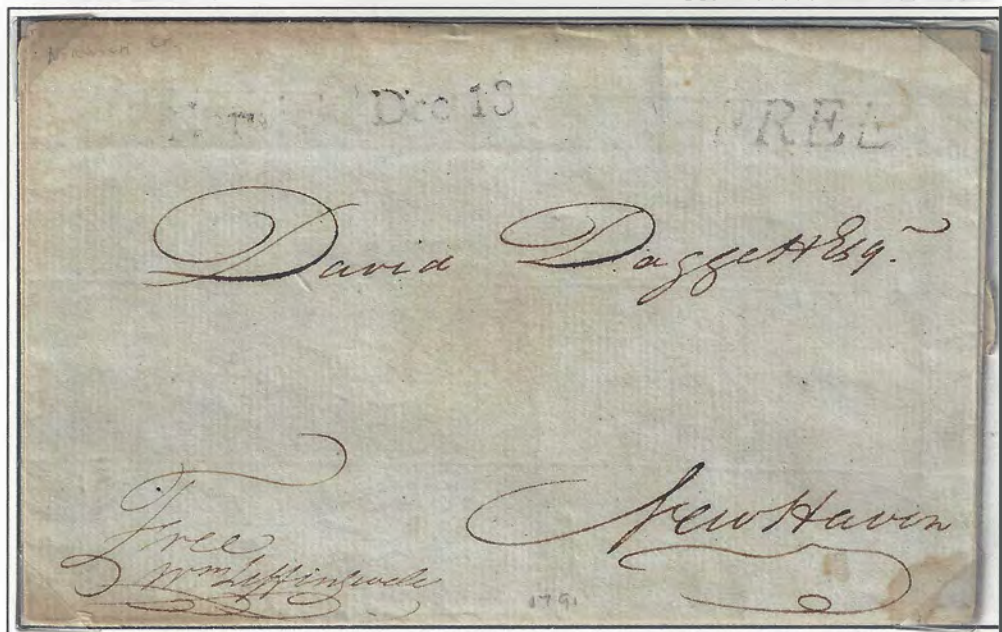 Dec 13
FREE
David Daggett Esqr.
New Haven
Free
Wm Leffingwell
1791